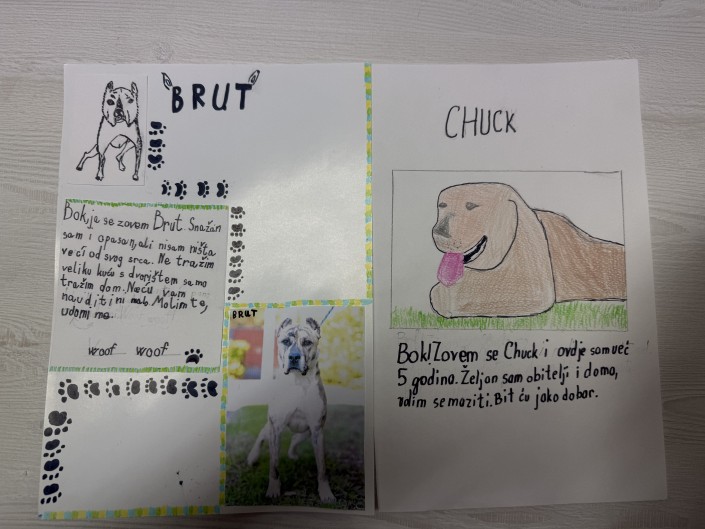 BRUT
Bok, ja se zovem Brut. Snažan
sam i opasan, ali nisam ništa
veći od svog srca. Ne tražim
veliku kuću s dvorištem samo
tražim dom. Neću vam
nauditi ni malo. Molim te,
udomi me.
woof woof
BRUT
CHUCK
Bok! Zovem se Chuck i ovdje sam već
5 godina. Željan sam obitelji i doma,
volim se maziti. Bit ću jako dobar.